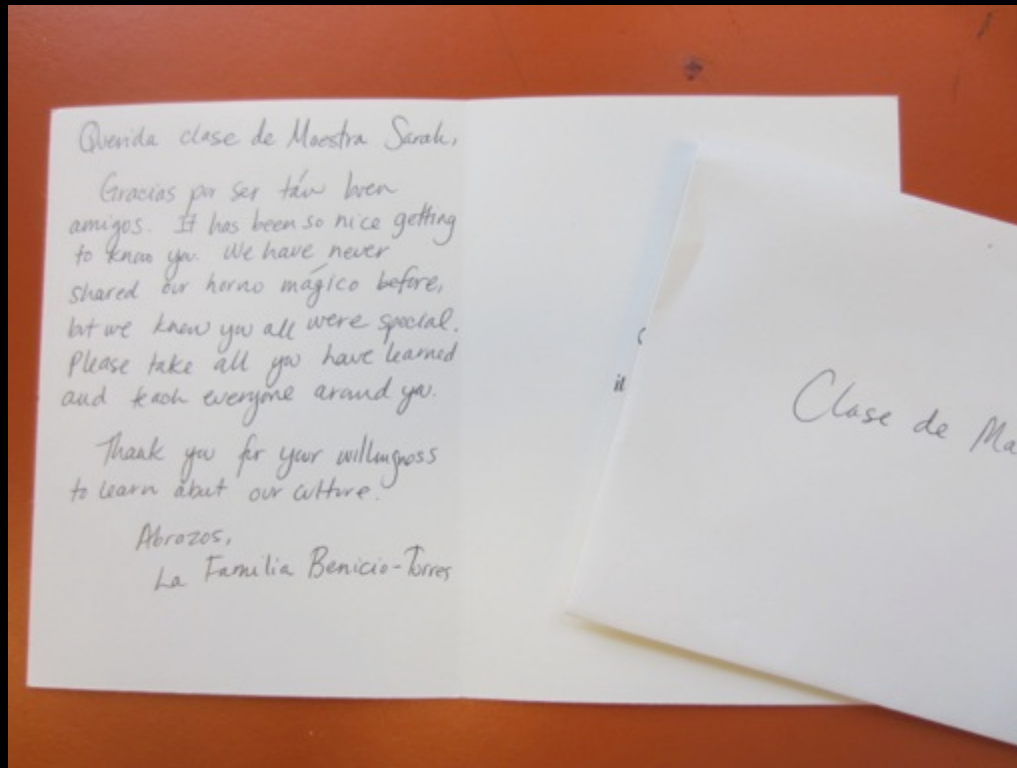 Querida clase de Maestra Sarah,
Gracias por ser tán buen
amigos. It has been so nice getting
to know you. We have never
shared our horno mágico before,
but we knew you all were special.
Please take all you have learned
and teach everyone around you.
Thank you for your willingness
to learn about our culture.
Abrazos,
La Familia Benicio-Torres
it
Clase de Ma